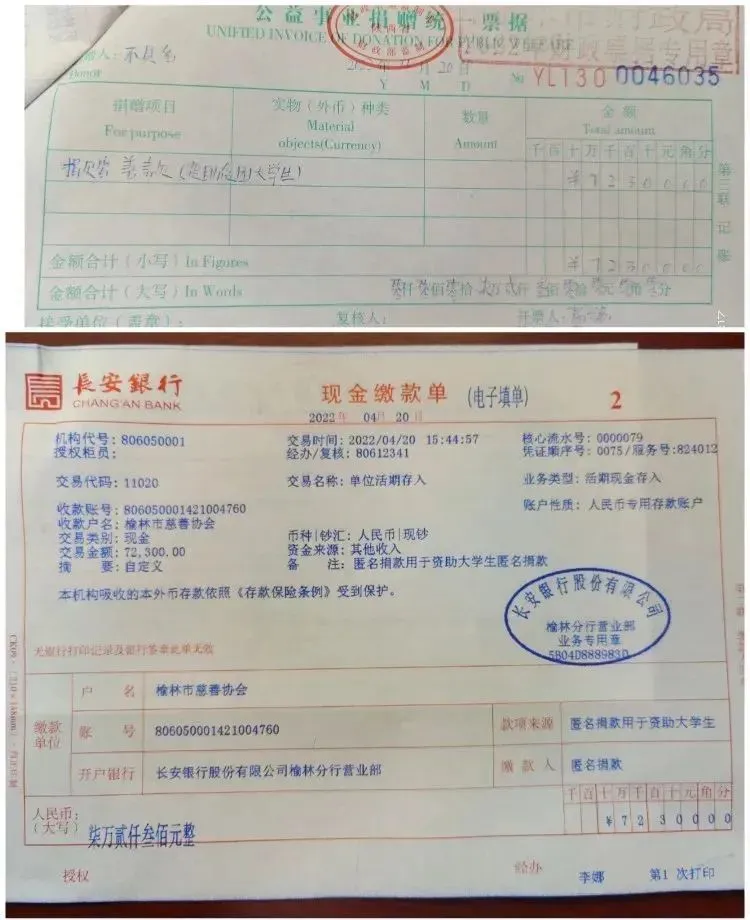 公益事业捐赠统一票据
UNIFIED INVOICE OF DONATION FOR PUBLIC WELFARE
财政局
2022年财政票据专用章
捐赠人：不具名
Donor
20日
Y M D
№ YL130 0046035
捐赠项目 实物（外币）种类 数量 金额
For purpose Material objects(Currency) Amount Total amount
千百十万千百十元角分
捐资 善款（资助贫困大学生） ¥7230000
金额合计（小写）In Figures ¥7230000
金额合计（大写）In Words 零仟零佰零拾柒万贰仟叁佰零拾零元零角零分
接受单位（盖章）： 复核人： 开票人：
第三联 记账
長安銀行
CHANG'AN BANK
现金缴款单 (电子填单) 2
2022年 04月 20日
机构代号：806050001 交易时间：2022/04/20 15:44:57 核心流水号：0000079
授权柜员： 经办/复核：80612341 凭证顺序号：0075/服务号:824012
交易代码：11020 交易名称：单位活期存入 业务类型：活期现金存入
收款账号：806050001421004760 账户性质：人民币专用存款账户
收款户名：榆林市慈善协会
交易类别：现金 币种|钞汇：人民币|现钞
交易金额：72,300.00 资金来源：其他收入
摘 要：自定义 备 注：匿名捐款用于资助大学生匿名捐款
本机构吸收的本外币存款依照《存款保险条例》受到保护。
长安银行股份有限公司
榆林分行营业部
业务专用章
5804D888983D
无银行打印记录及银行签章此单无效
缴款单位
户 名 榆林市慈善协会
账 号 806050001421004760 款项来源 匿名捐款用于资助大学生
开户银行 长安银行股份有限公司榆林分行营业部 缴款人 匿名捐款
千百十万千百十元角分
人民币：（大写） 柒万贰仟叁佰元整 ¥7230000
授权 经办 李娜 第1 次打印